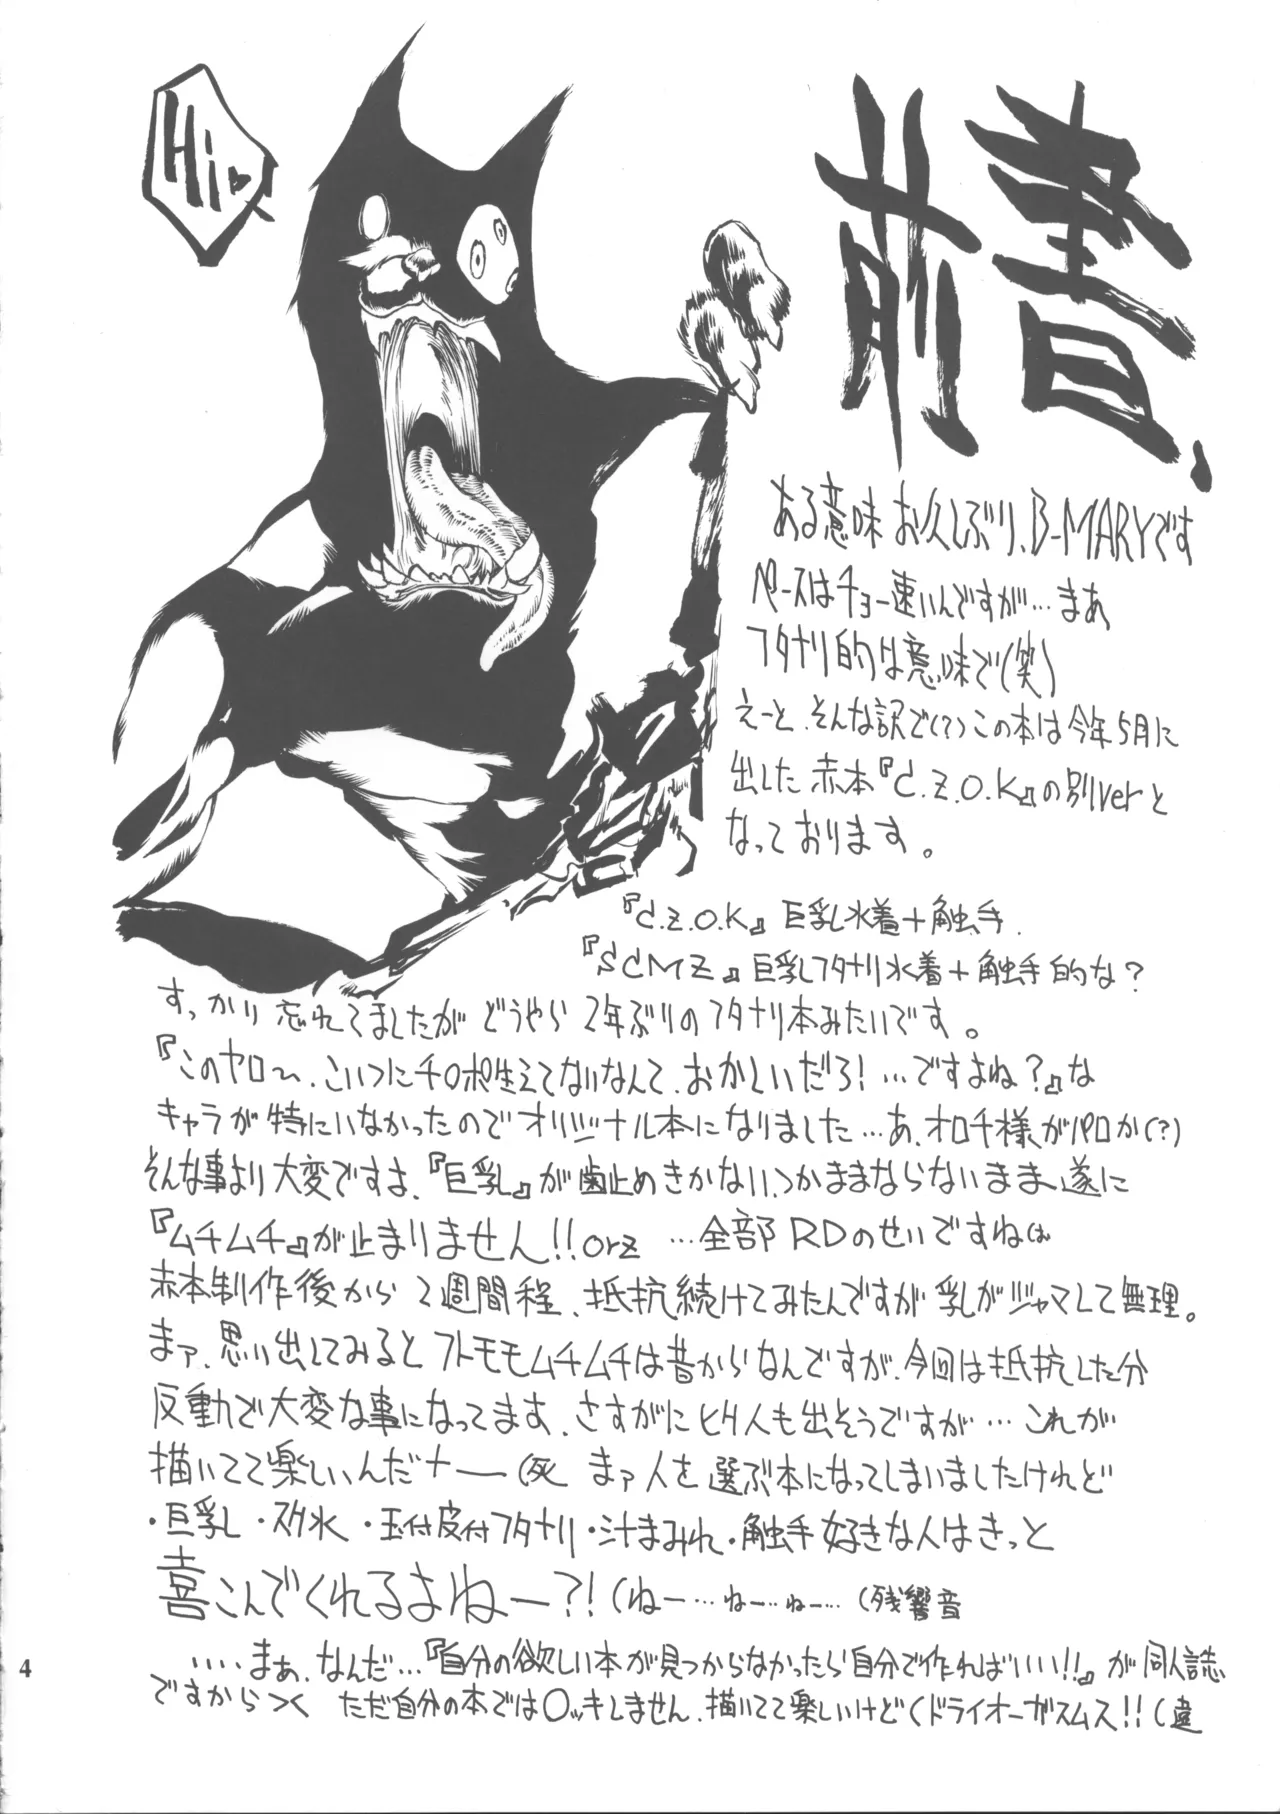 Hi♥
前書、
ある意味お久しぶり、B-MARYです
ペースはチョー速いんですが…まあ
フタナリ的な意味で(笑)
えーと、そんな訳で(?)この本は今年5月に
出した赤本『C.Z.O.K』の別verと
なっております。
『C.Z.O.K』巨乳水着+触手.
『SCMZ』巨乳フタナリ水着+触手的な?
すっかり忘れてましたがどうやら2年ぶりのフタナリ本みたいです。
『このヤロ〜、こいつにチ○ポ生えてないなんて、おかしいだろ!…ですよね?』な
キャラが特にいなかったのでオリジナル本になりました…あ、オロチ様がパロか(?)
そんな事より大変ですよ、『巨乳』が歯止めきかない、つかままならないまま遂に
『ムチムチ』が止まりません!!orz …全部RDのせいですねは
赤本制作後から2週間程、抵抗続けてみたんですが乳がジャマして無理。
まァ、思い出してみるとフトモモムチムチは昔からなんですが、今回は抵抗した分
反動で大変な事になってます、さすがにヒク人も出そうですが…これが
描いてて楽しいんだナー(死 まァ人を選ぶ本になってしまいましたけれど
・巨乳・スク水・玉付皮付フタナリ・汁まみれ・触手好きな人はきっと
喜こんでくれるよねー?!(ねー…ねー…ねー…(残響音
….まぁ、なんだ…『自分の欲しい本が見つからなかったら自分で作ればいい!!』が同人誌
ですからつく ただ自分の本では○ッキしません、描いてて楽しいけど(ドライオーガスムス!!(違
4